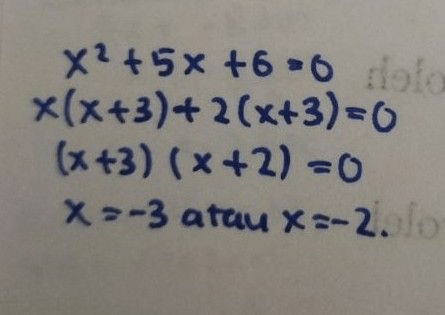 x² + 5x + 6 = 0
x(x+3) + 2(x+3) = 0
(x+3) (x+2) = 0
x = -3 atau x = -2.